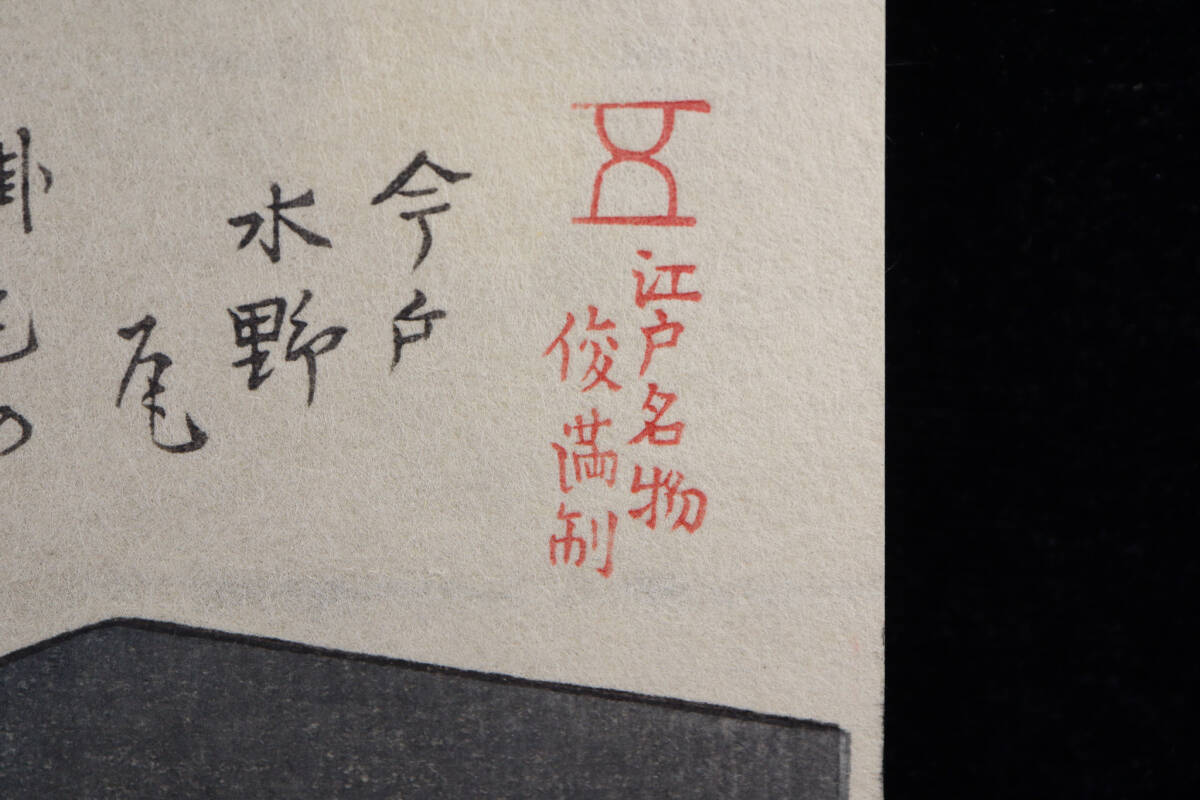 江戸名物
俊満制
今戸
水野
尾
掛尾の